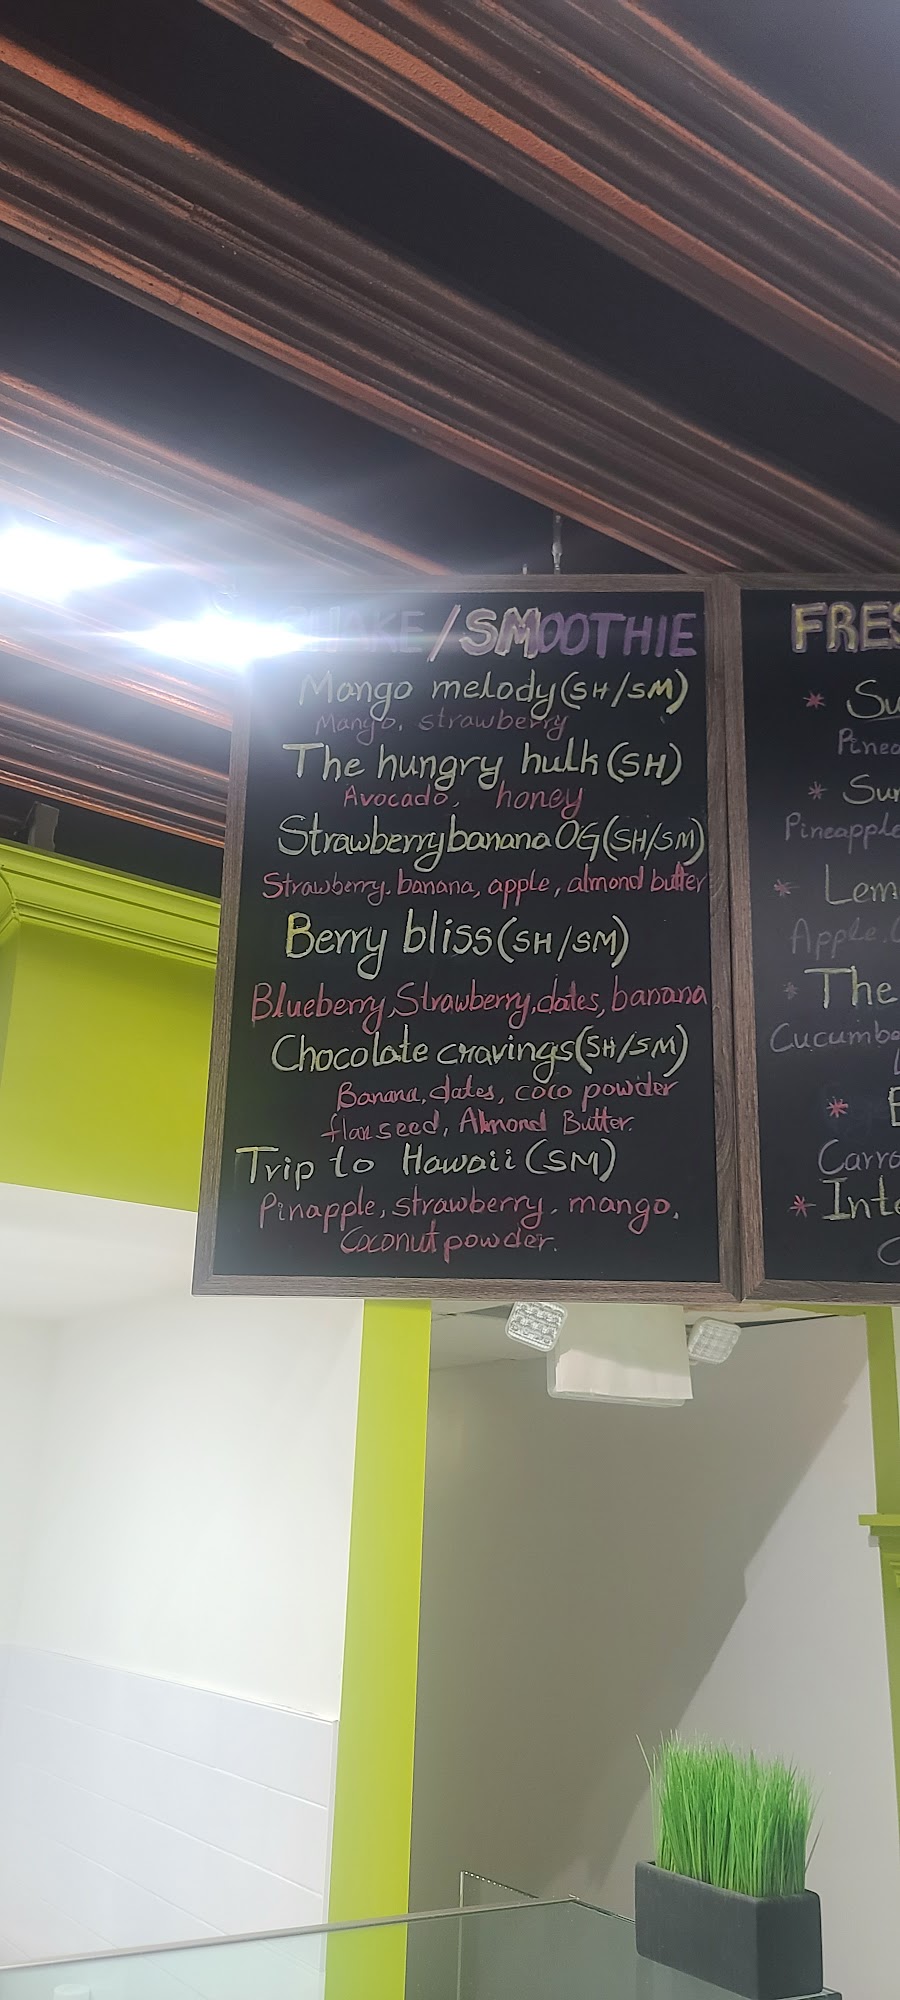 SHAKE/SMOOTHIE
Mango melody (SH/SM)
Mango, strawberry
The hungry hulk (SH)
Avocado, honey
Strawberry banana OG (SH/SM)
Strawberry. banana, apple, almond butter
Berry bliss (SH/SM)
Blueberry, Strawberry, dates, banana
Chocolate cravings (SH/SM)
Banana, dates, coco powder
flaxseed, Almond Butter.
Trip to Hawaii (SM)
Pinapple, strawberry, mango,
Coconut powder.
FRES
* Su
Pinea
* Sun
Pineapple
* Lem
Apple.
* The
Cucumbe
* 
Carro
* Inte